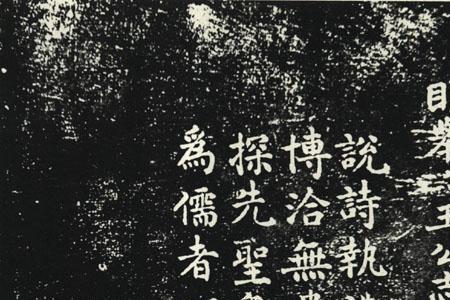 目王公
說詩執
博洽無
探先聖
爲儒者